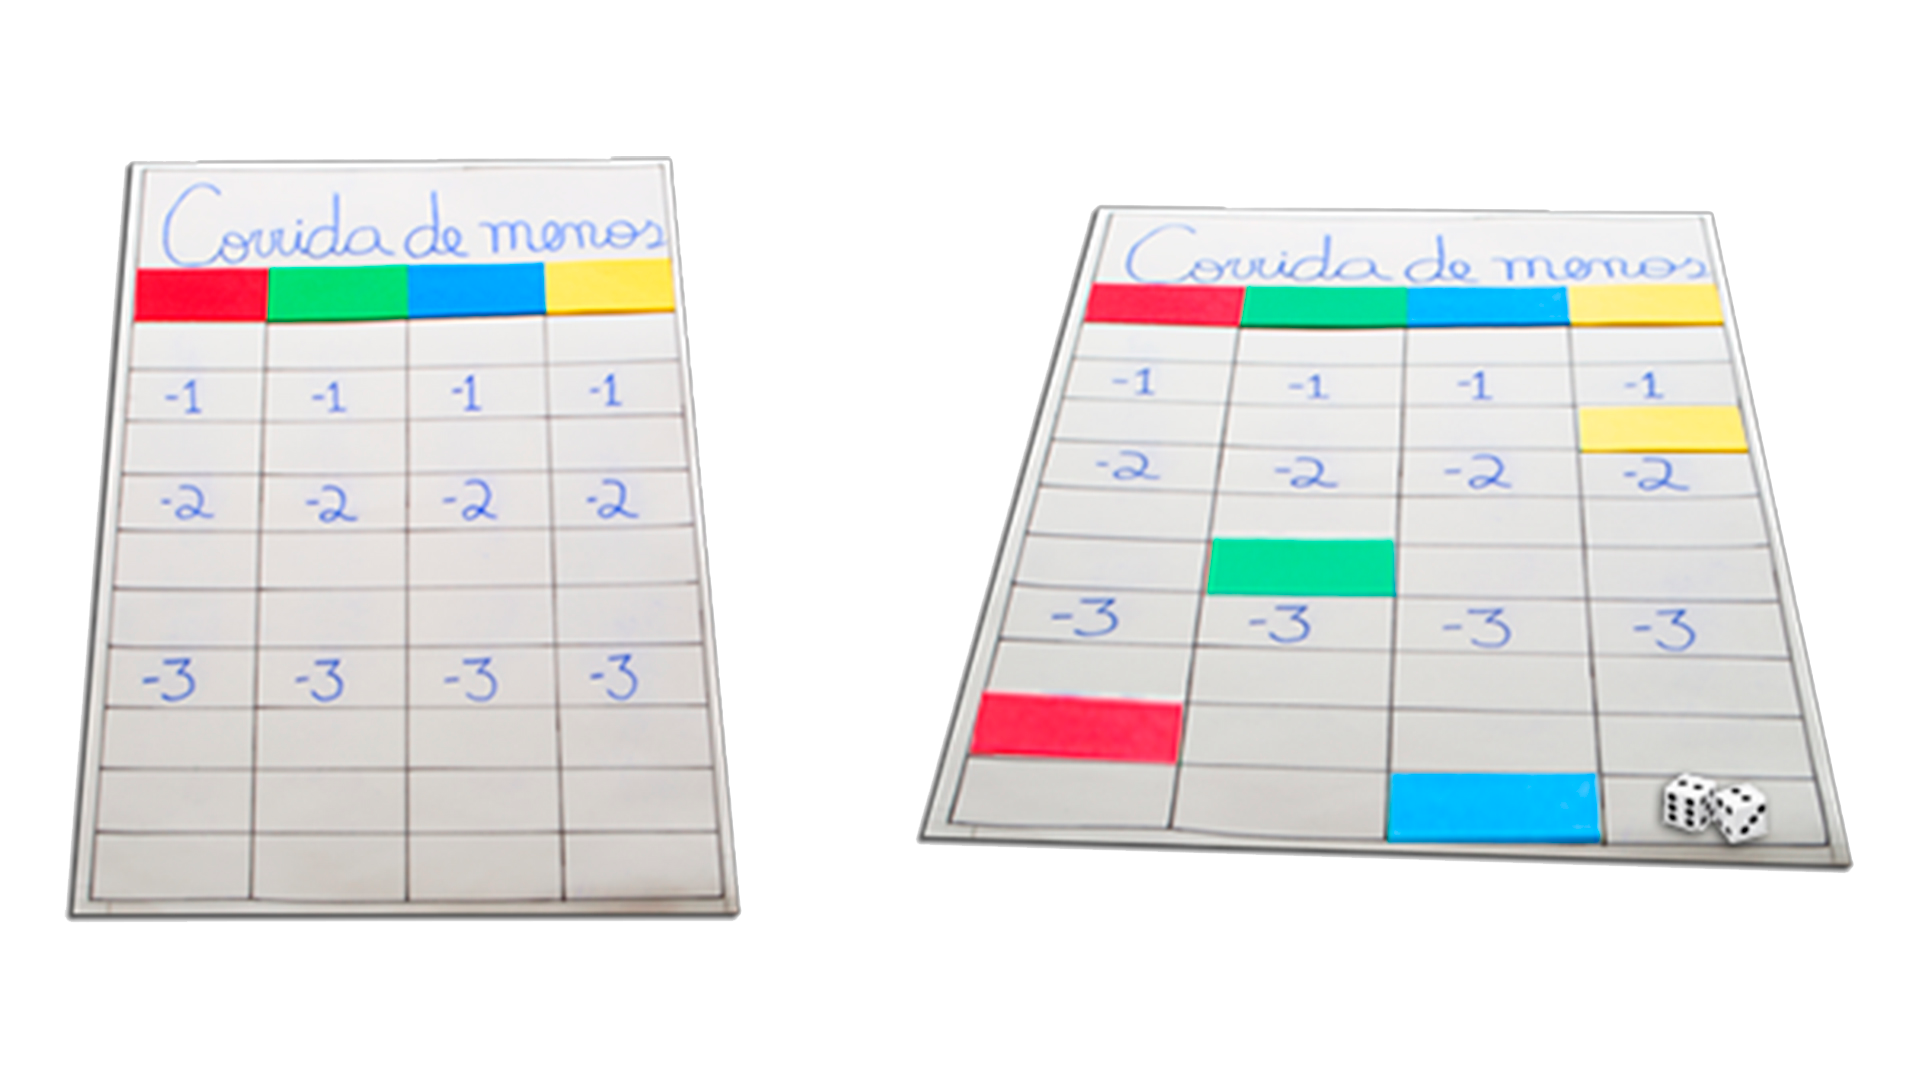 Corrida de menos
-1 -1 -1 -1
-2 -2 -2 -2
-3 -3 -3 -3
Corrida de menos
-1 -1 -1 -1
-2 -2 -2 -2
-3 -3 -3 -3